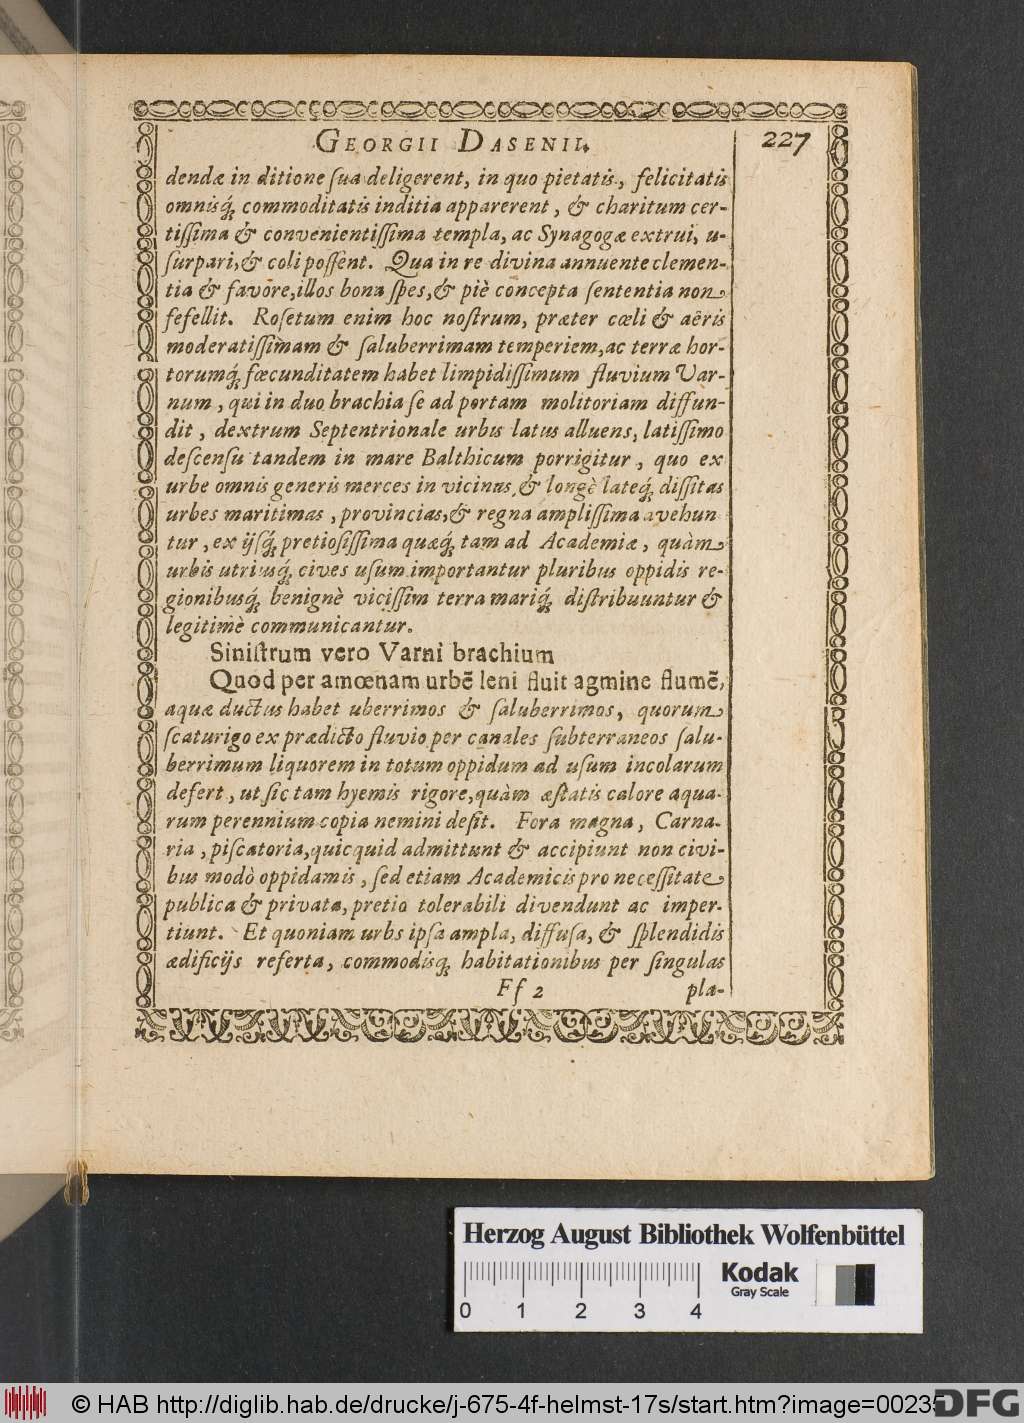 GEORGII DASENII. 227
dendæ in ditione ſua deligerent, in quo pietatis, felicitatis
omnisq́; commoditatis inditia apparerent, & charitum cer-
tiſſima & convenientiſſima templa, ac Synagogæ extrui, u-
ſurpari, & coli poſſent. Qua in re divina annuente clemen-
tia & favore, illos bona ſpes, & piè concepta ſententia non
fefellit. Roſetum enim hoc noſtrum, præter cœli & aëris
moderatiſſimam & ſaluberrimam temperiem, ac terræ hor-
torumq́; fœcunditatem habet limpidiſſimum fluvium Var-
num, qui in duo brachia ſe ad portam molitoriam diffun-
dit, dextrum Septentrionale urbis latus alluens, latiſſimo
deſcenſu tandem in mare Balthicum porrigitur, quo ex
urbe omnis generis merces in vicinas, & longè lateq́; diſſitas
urbes maritimas, provincias, & regna ampliſſima avehun
tur, ex ijſq́; pretioſiſſima quæq́; tam ad Academiæ, quàm
urbis utriusq́; cives uſum importantur pluribus oppidis re-
gionibusq́; benignè viciſſim terra mariq́; diſtribuuntur &
legitimè communicantur.
Siniſtrum vero Varni brachium
Quod per amœnam urbẽ leni fluit agmine flumẽ,
aquæ ductus habet uberrimos & ſaluberrimos, quorum
ſcaturigo ex prædicto fluvio per canales ſubterraneos ſalu-
berrimum liquorem in totum oppidum ad uſum incolarum
defert, ut ſic tam hyemis rigore, quàm æſtatis calore aqua-
rum perennium copia nemini deſit. Fora magna, Carna-
ria, piſcatoria, quicquid admittunt & accipiunt non civi-
bus modò oppidamis, ſed etiam Academicis pro neceſſitate
publica & privata, pretio tolerabili divendunt ac imper-
tiunt. Et quoniam urbs ipſa ampla, diffuſa, & ſplendidis
ædificijs referta, commodisq́; habitationibus per ſingulas
Ff 2 pla-
Herzog August Bibliothek Wolfenbüttel
0 1 2 3 4
Kodak
Gray Scale
© HAB http://diglib.hab.de/drucke/j-675-4f-helmst-17s/start.htm?image=00235
DFG